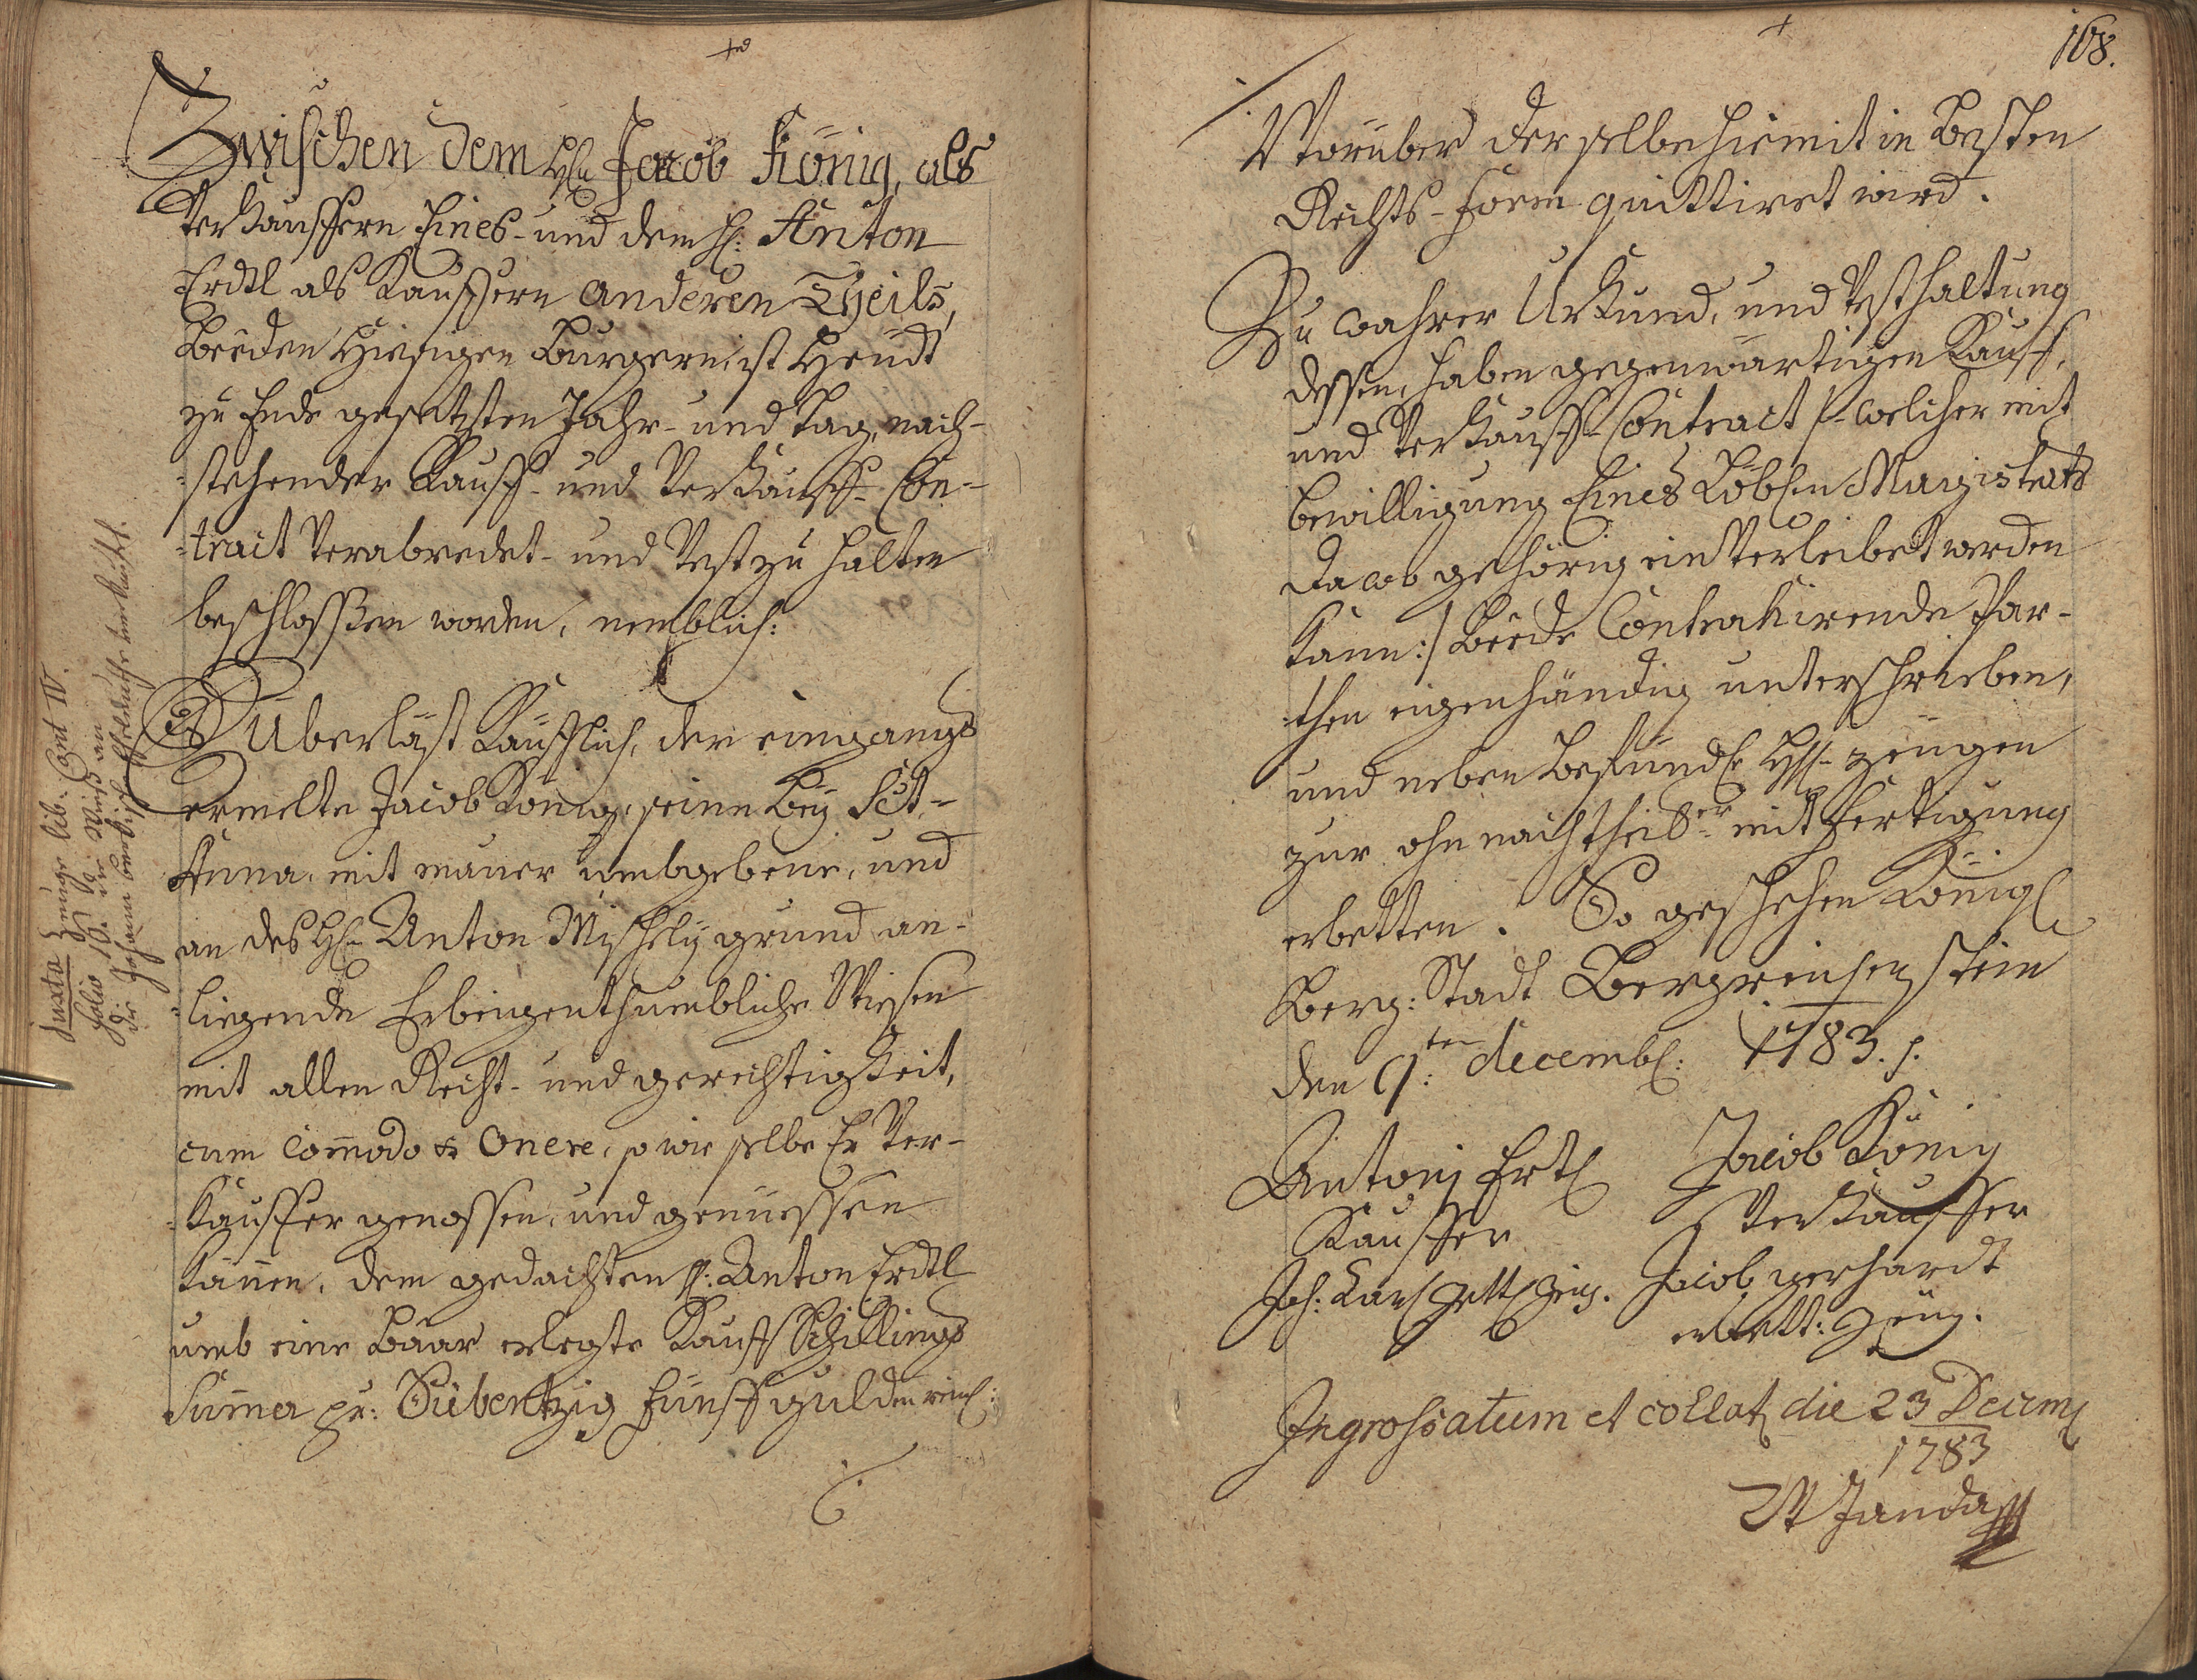 Zwischen dem H̃n Jacob König, als
Verkauffern Eines- und dem H: Anton
Erdtl als Kauffern anderen Theils,
beeden hiesigen Burgern, ist heudt
zu Ende gesetzten Jahr- und Tag, nach-
stehender Kauff- und Verkauff- Con-
tract verabredet- und vest zu halten
beschlossen worden, nemblich:
Es Überläst Käufflich, der eingangs
ermelte Jacob König, seine beÿ Sct.
Anna, mit mauer umbgebene, und
an des H̃n Anton Mischelÿ grund an-
liegende Erbeigenthumbliche Wiesen
mit allen Recht- und gerechtigkeit,
cum Com̄odo & Onere, so wie selbe Er Ver-
kauffer genossen, und genüessen
können, dem gedachten H: Anton Erdtl
umb eine baar erlegte Kauff Schillings
Sum̄a pr: Siebentzig fünff gulden rein:
Juxta Zeuge lib. Cont IV.
folio 19. die Wies an
die Johann
verkauft.
168.
Worüber derselbe hiemit in besten
Rechts-Form quittiret wird.
Zu wahrer Urkund, und Vesthaltung
dessen, haben gegenwärtigen Kauff-
und Verkauff- Contract /:welcher mit
bewilligung Eines Löbln Magistrats
da wo gehörig einverleibet werden
kann:/ beede Contrahirende Par-
then eigenhändig unterschrieben,
und neben zeügen
zur ohnnachtheiler mitfertigung
erbetten. So geschehen Königl
Berg: Stadt Bergreichenstein
den 9:ten decembr: 1783.
Antonj Ertl
Kauffer
Jacob König
Verkauffer
Joh: Karl Zeüg.
Jacob gerhardt
erbett: Zeüg.
Ingrossatum et collat die 23 Decem
1783
W Janda